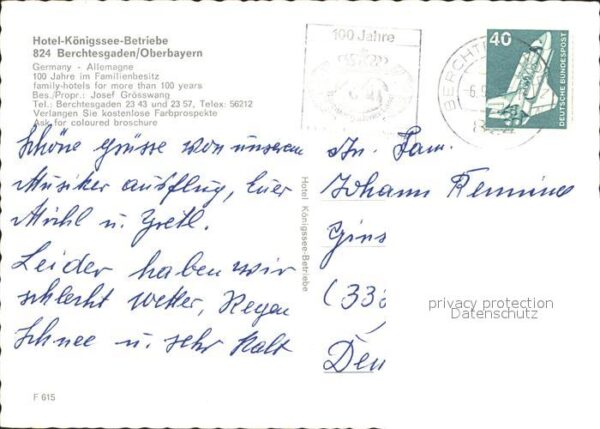 Hotel-Königssee-Betriebe
824 Berchtesgaden/Oberbayern
Germany - Allemagne
100 Jahre im Familienbesitz
family-hotels for more than 100 years
Bes./Propr.: Josef Grösswang
Tel.: Berchtesgaden 23 43 und 23 57, Telex: 56212
Verlangen Sie kostenlose Farbprospekte
Ask for coloured broschure
100 Jahre
BERCHT
40
DEUTSCHE BUNDESPOST
Schöne Grüsse von unserem
Musiker ausflug, Euer
Michl u. Gretl.
Leider haben wir
schlecht Wetter, Regen
Schnee u. sehr kalt
Hotel Königssee-Betriebe
An Fam.
Johann
Gins
(338
Den
privacy protection
Datenschutz
F 615